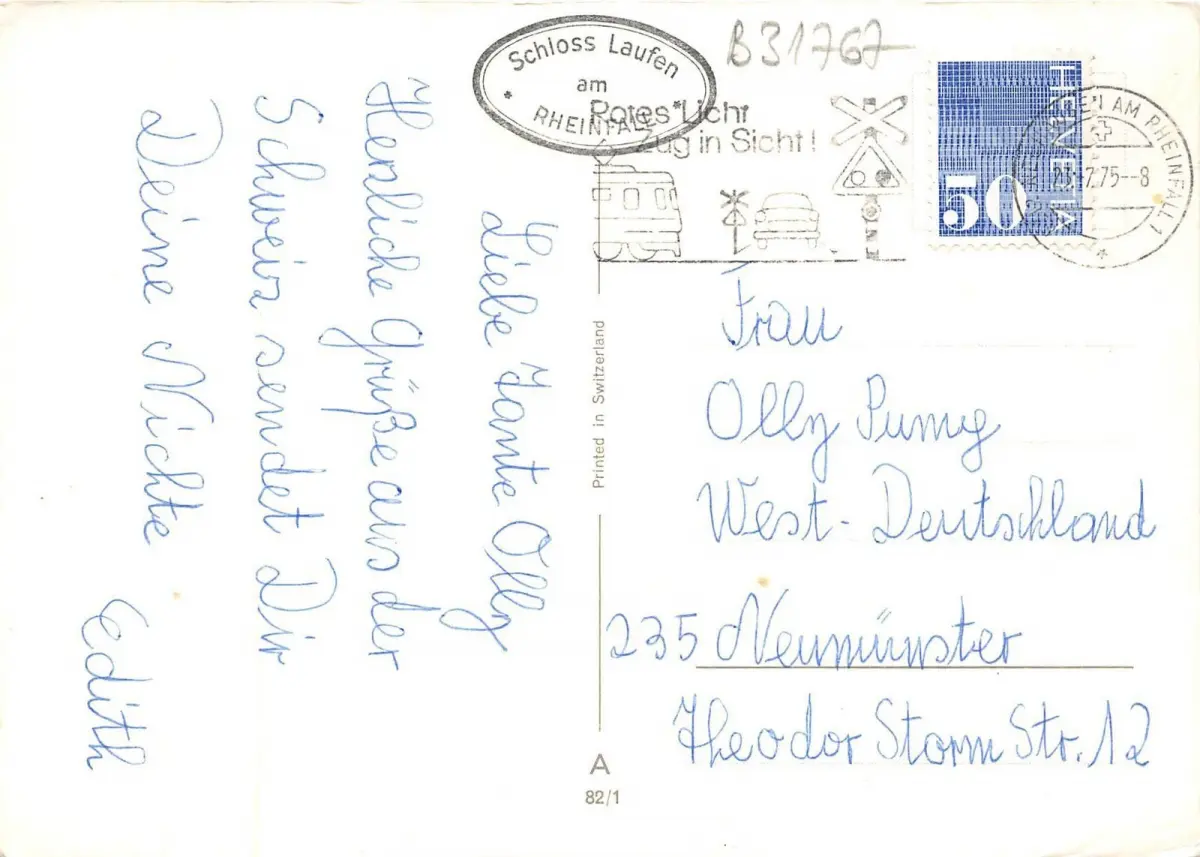 Liebe Tante Olly
Herzliche Grüße aus der
Schweiz sendet Dir
Deine Nichte
Edith
Schloss Laufen
am
* RHEINFALL *
B31767
Rotes Licht
Zug in Sicht!
HELVETIA
50
AM RHEINFALL 1
23.-7.75--8
Printed in Switzerland
Frau
Olly
West-Deutschland
235 Neumünster
Theodor Storm Str. 12
A
82/1